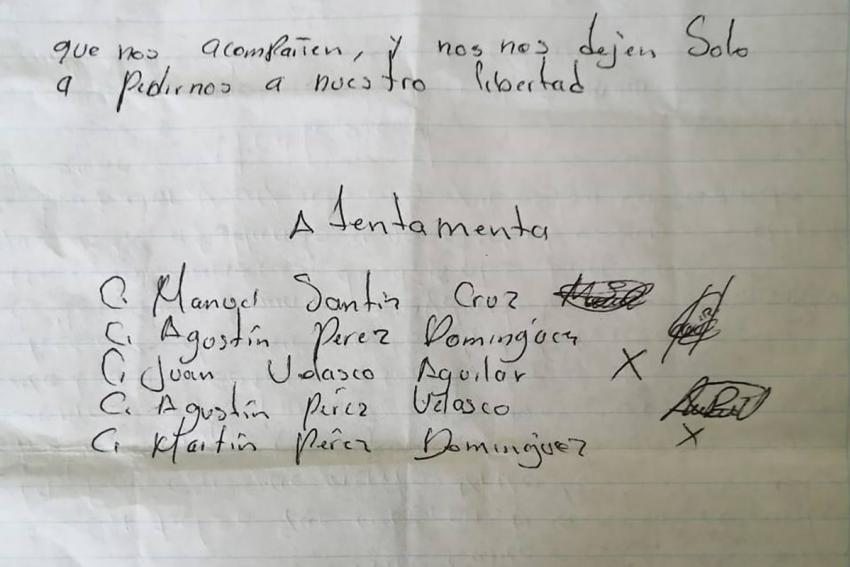 que nos acompañen, y nos nos dejen Solo
a Pedirnos a nuestro libertad
Atentamenta
C. Manuel Santiz Cruz
C. Agustín Perez Domínguez
C. Juan Velasco Aguilar X
C. Agustín Pérez Velasco
C. Martín Pérez Domínguez X